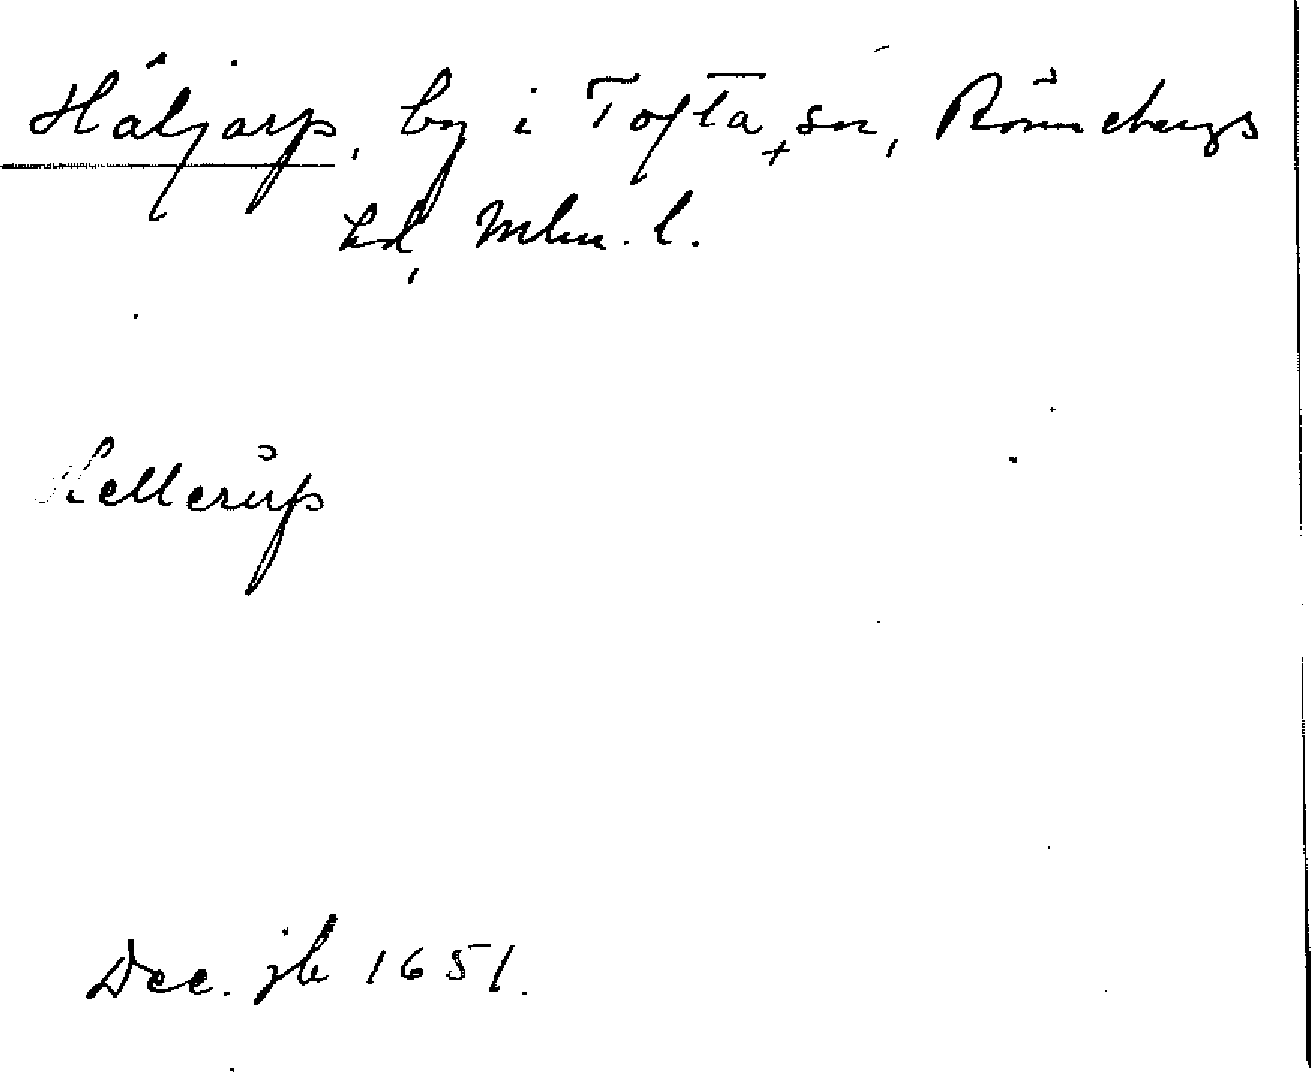 Häljarp, by i Tofta sn, Rönnebergs
hd, Mlm. l.
Hellerup
Dec. jb 1651.